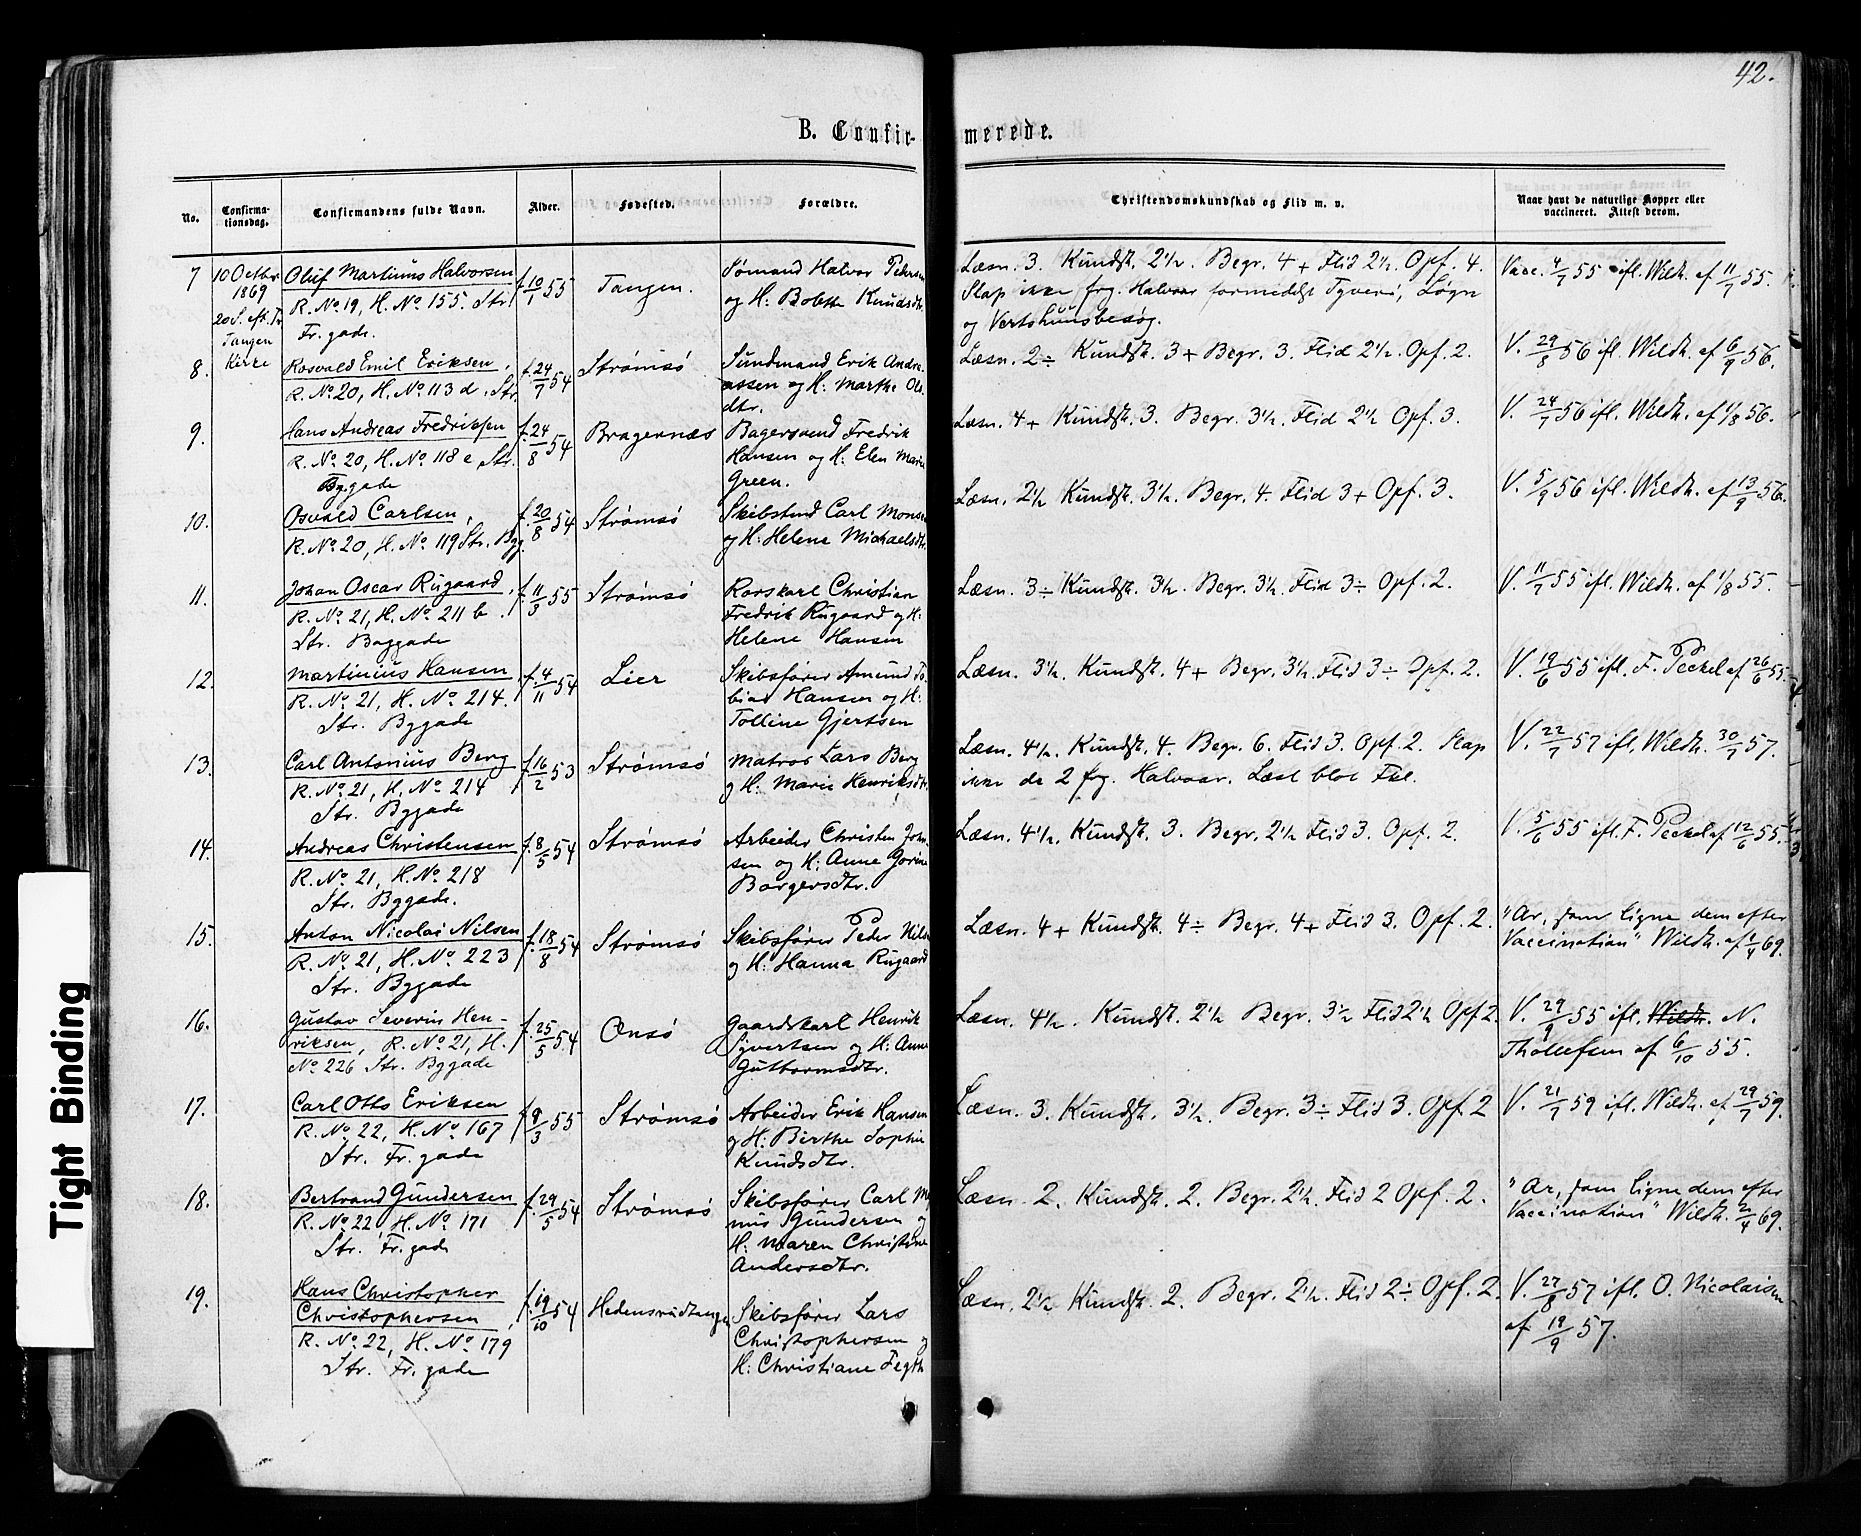 42.
B. Confir-merede.
No. Confirma-tionsdag. Confirmandens fulde Navn. Alder. Fødested. Forældre. Christendomskundskab og Flid m. v. Naar havt de naturlige Kopper eller vaccineret. Attest derom.
7 10 Octbr Oluf Martinius Halvorsen f. 10/1 55 Tangen. Sømand Halvor Pedersen Læsn. 3. Kundsk. 2½. Begr. 4+ Flid 2½. Opf. 4. Vacc. 4/7 55 ifl. Wildh. af 11/7 55.
1869 R. No 19, H. No 155. Str og H: Bolette Knudsdtr Slap ikke frg. Halvaar formedelst Tyveri, Løgn
20 S. eft. Tr Fr. gade. og Vertshuusbesøg.
Tangen
Kirke
8. Rosvald Emil Eriksen, f. 24/7 54 Strømsø Sundmand Erik Andre- Læsn. 2÷ Kundsk. 3+ Begr. 3. Flid 2½. Opf. 2. V. 29/8 56 ifl. Wildh. af 6/9 56.
R. No 20, H. No 113 d. Str. assen og H: Marthe Ols
dtr.
9. Hans Andreas Fredriksen f. 24/8 54 Bragernæs Bagersvend Fredrik Læsn. 4+ Kundsk. 3. Begr. 3½. Flid 2½ Opf. 3. V. 24/7 56 ifl. Wildh. af 1/8 56.
R. No 20, H. No 118 e, Str. Hansen og H: Elen Marie
Byg.gade Green.
10. Osvald Carlsen, f. 20/8 54 Strømsø Skibstmd Carl Monsen Læsn. 2½ Kundsk. 3½. Begr. 4. Flid 3+ Opf. 3. V. 5/9 56 ifl. Wildh. af 13/9 56.
R. No 20, H. No 119 Str. Byg. og H: Helene Michaelsdtr.
11. Johan Oscar Rugaard, f. 11/3 55 Strømsø Rorskarl Christian Læsn. 3÷ Kundsk. 3½. Begr. 3½. Flid 3÷ Opf. 2. V. 11/7 55 ifl. Wildh. af 1/8 55.
R. No 21, H. No 211 b. Fredrik Rugaard og H:
Str. Baggade Helene Hansen
12. Martinius Hansen f. 4/11 54 Lier Skibsfører Amund To- Læsn. 3½. Kundsk. 4+ Begr. 3½. Flid 3÷ Opf. 2. V. 19/6 55 ifl. F. Peckel af 26/6 55.
R. No 21, H. No 214. bias Hansen og H:
Str. Bygade Tolline Gjertsen
13. Carl Antonius Berg f. 16/2 53 Strømsø Matros Lars Berg Læsn. 4½. Kundsk. 4. Begr. 6. Flid 3. Opf. 2. Slap V. 22/7 57 ifl. Wildh. 30/7 57.
R. No 21, H. No 214 og H: Marie Henriksdtr. ikke de 2 frg. Halvaar. Læst blot Fkl.
Str. Bygade
14. Andreas Christensen f. 8/5 54 Strømsø Arbeider Christen John- Læsn. 4½. Kundsk. 3. Begr. 2½ Flid 3. Opf. 2. V. 5/6 55 ifl. F. Peckel af 12/6 55.
R. No 21, H. No 218 sen og H: Anne Gorine
Str. Bygade. Borgersdtr.
15. Anton Nicolai Nilsen f. 18/8 54 Strømsø Skibsfører Peder Nilsen Læsn. 4+ Kundsk. 4÷ Begr. 4+ Flid 3. Opf. 2. "Ar, som ligne dem efter
R. No 21, H. No 223 og H: Hanna Rugaard Vaccination" Wildh. af 1/4 69.
Str. Bygade
16. Gustav Severin Hen- f. 25/5 54 Onsø Gaardskarl Henrik Læsn. 4½. Kundsk. 2½ Begr. 3½ Flid 2½ Opf. 2. V. 29/9 55 ifl. Wildh. N.
riksen, R. No 21, H. Syvertsen og H: Anne Thollefsen af 6/10 55.
No 226 Str. Bygade Guttormsdtr.
17. Carl Otto Eriksen f. 9/3 55 Strømsø Arbeider Erik Hansen Læsn. 3. Kundsk. 3½. Begr. 3÷ Flid 3. Opf. 2 V. 21/7 59 ifl. Wildh. af 29/7 59.
R. No 22, H. No 167 og H: Birthe Sophie
Str. Fr. gade Knudsdtr.
18. Bertrand Gundersen f. 29/5 54 Strømsø Skibsfører Carl Mag Læsn. 2. Kundsk. 2. Begr. 2½. Flid 2 Opf. 2. "Ar, som ligne dem efter
R. No 22, H. No 171 nus Gundersen og Vaccination" Wildh. 2/4 69.
Str. Fr. gade H: Maren Christine
Andersdtr.
19. Hans Christopher f. 19/10 54 Hedensrudtangen Skibsfører Lars Læsn. 2½ Kundsk. 2. Begr. 2½. Flid 2÷ Opf. 2. V. 27/8 57 ifl. O. Nicolaisen
Christophersen, Christophersen og af 19/9 57.
R. No 22, H. No 179 H: Christiane Fegth
Str. Fr. gade
Tight Binding